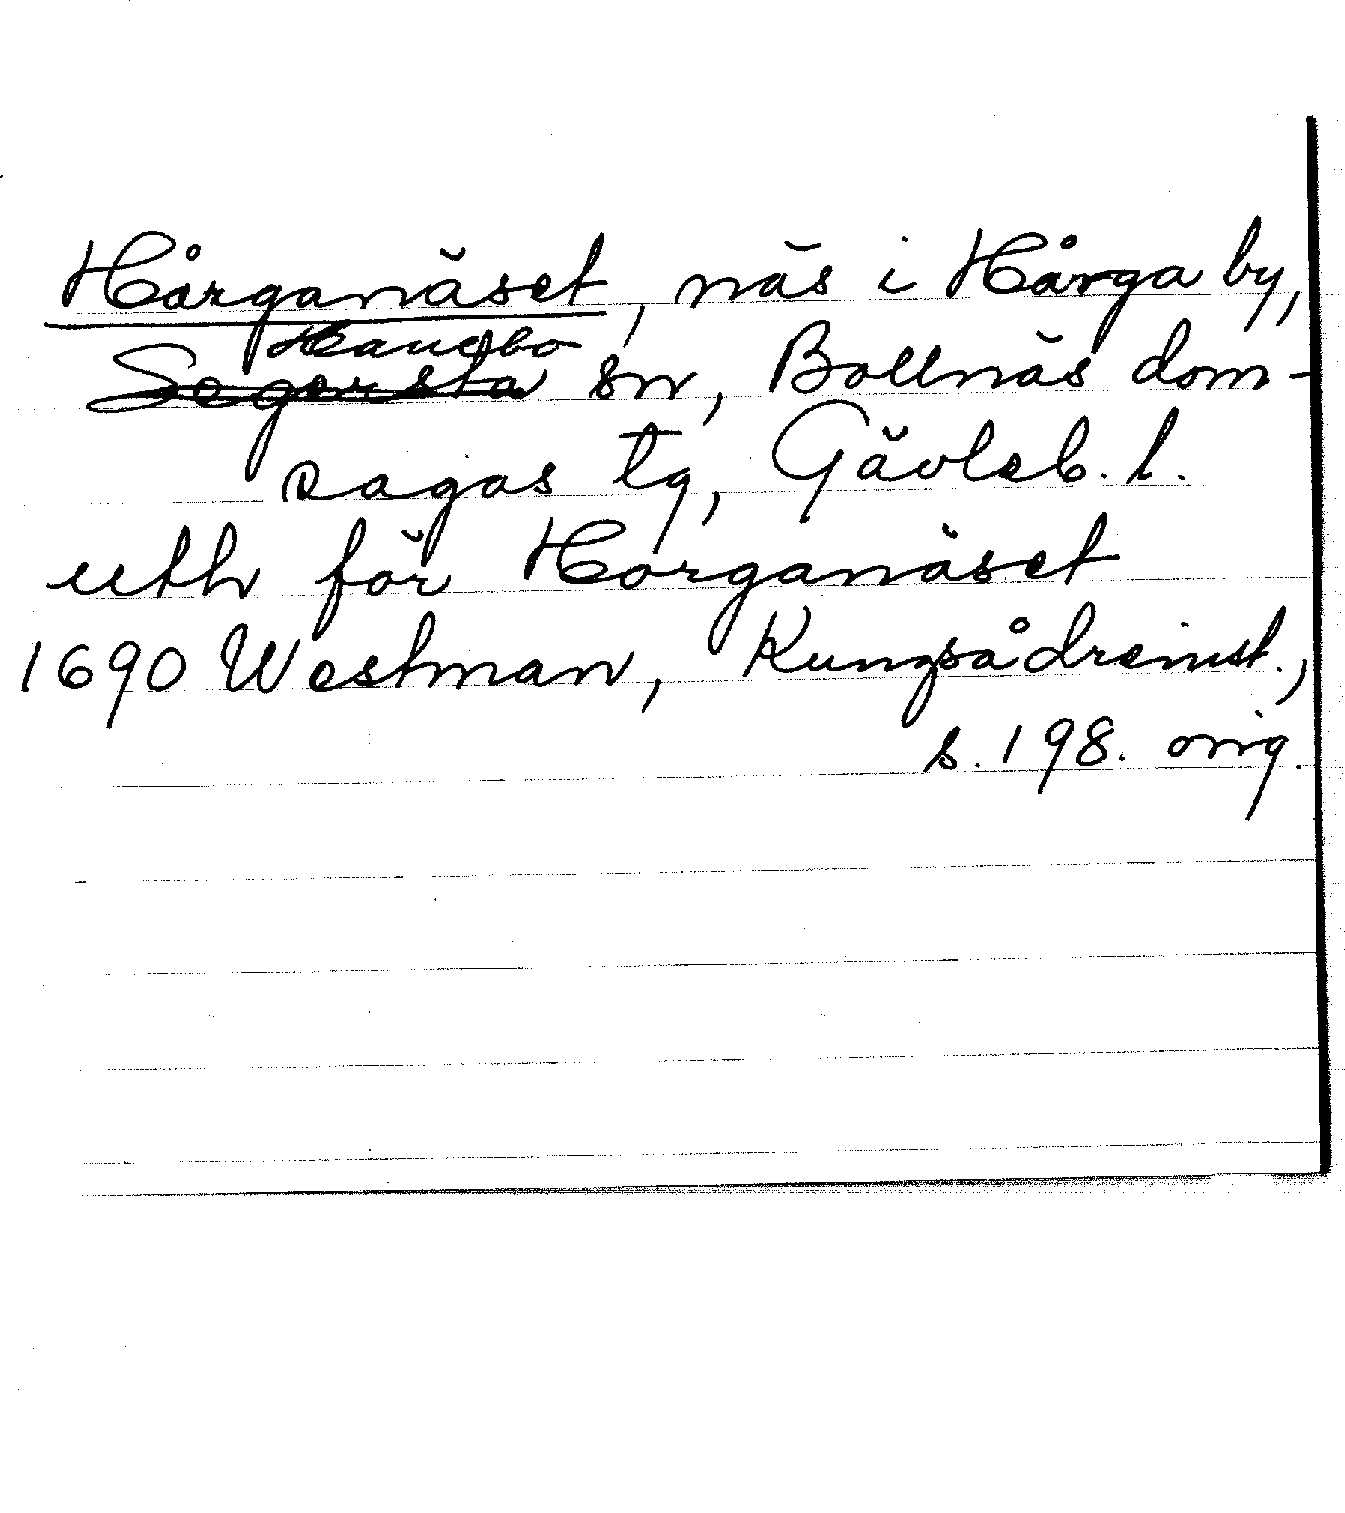 Hårganäset, näs i Hårga by,
Hanebo
Segersta sn, Bollnäs dom-
sagas tg, Gävleb. l.
uth för Horganäset
1690 Westman, Kungsådreinst.,
s. 198. orig.